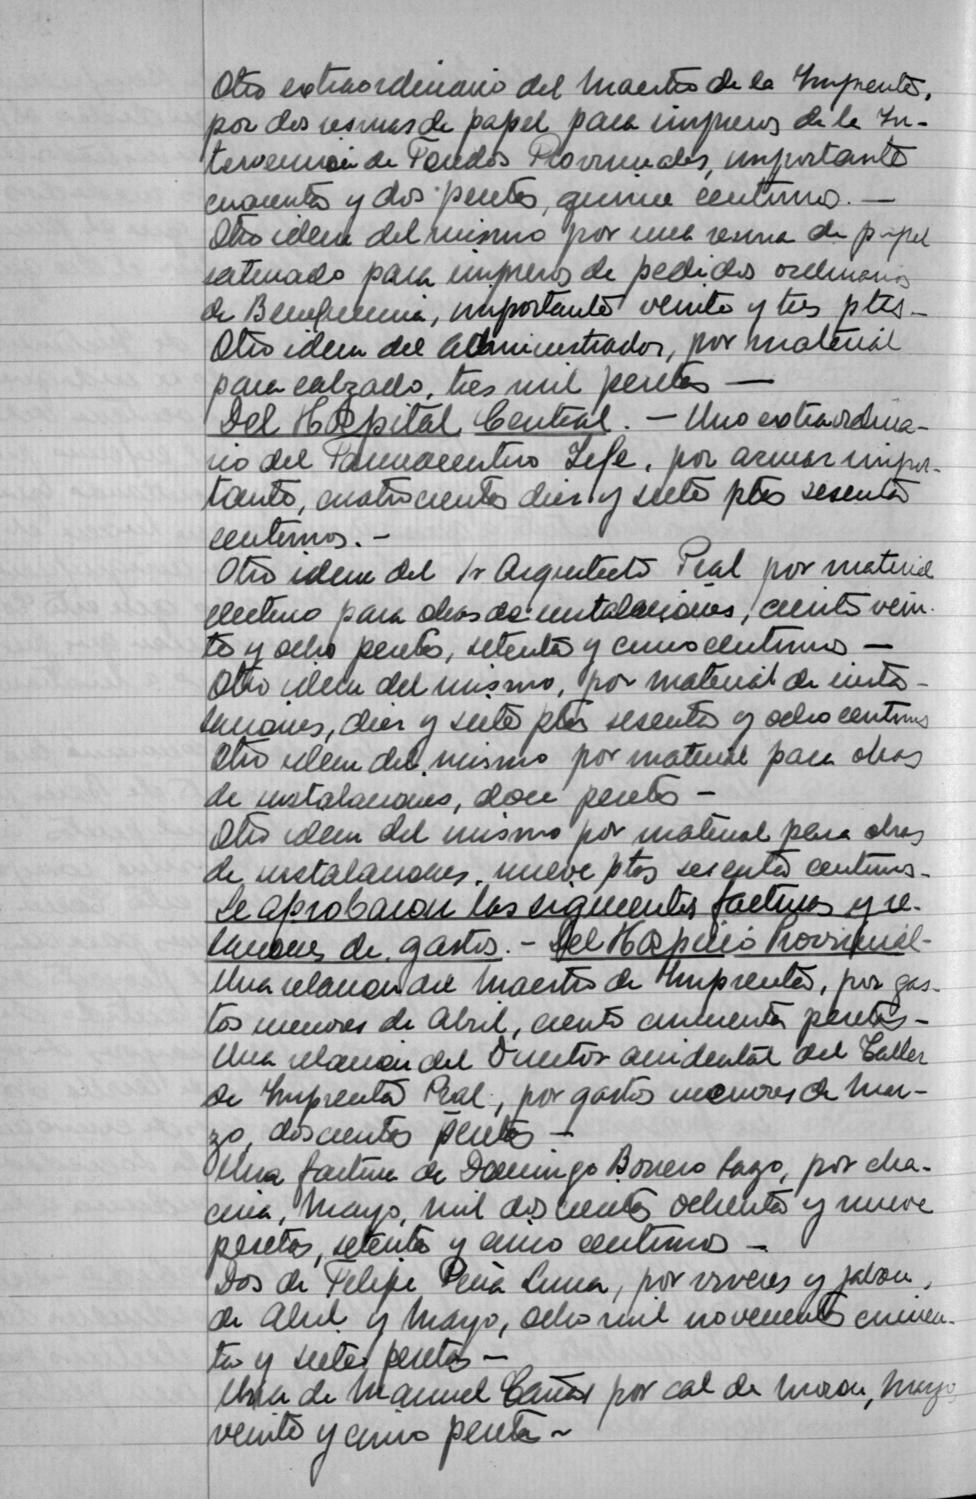 Otro extraordinario del Maestro de la Imprenta,
por dos resmas de papel para impresos de la In-
tervención de Fondos Provinciales, importante
cuarenta y dos pesetas, quince centimos. —
Otro idem del mismo por una resma de papel
satinado para impresos de pedidos ordinarios
de Beneficencia, importante veinte y tres ptas. —
Otro idem del Administrador, por material
para calzado, tres mil pesetas —
Del Hospital Central. — Uno extraordina-
rio del Farmaceutico Jefe, por azucar impor-
tante, cuatrocientas diez y siete ptas sesenta
centimos. —
Otro idem del Sr Arquitecto Pral por material
electrico para obras de instalaciones, ciento vein-
te y ocho pesetas, setenta y cinco centimos —
Otro idem del mismo, por material de insta-
laciones, diez y siete ptas sesenta y ocho centimos
Otro idem del mismo por material para obras
de instalaciones, doce pesetas —
Otro idem del mismo por material para obras
de instalaciones, nueve ptas sesenta centimos. —
Se aprobaron las siguientes facturas y re-
laciones de gastos. — Del Hospicio Provincial —
Una relacion del Maestro de Imprenta, por gas-
tos menores de Abril, ciento cincuenta pesetas —
Una relación del Director accidental del Taller
de Imprenta Pral., por gastos menores de Mar-
zo, doscientas pesetas —
Una factura de Domingo Borrero Lazo, por cha-
cina, Mayo, mil doscientas ochenta y nueve
pesetas, setenta y cinco centimos —
Dos de Felipe Peña Luna, por viveres y jabon,
de Abril y Mayo, ocho mil novecientas cincuen-
ta y siete pesetas —
Una de Manuel Cañas por cal de Moron, Mayo
veinte y cinco pesetas —